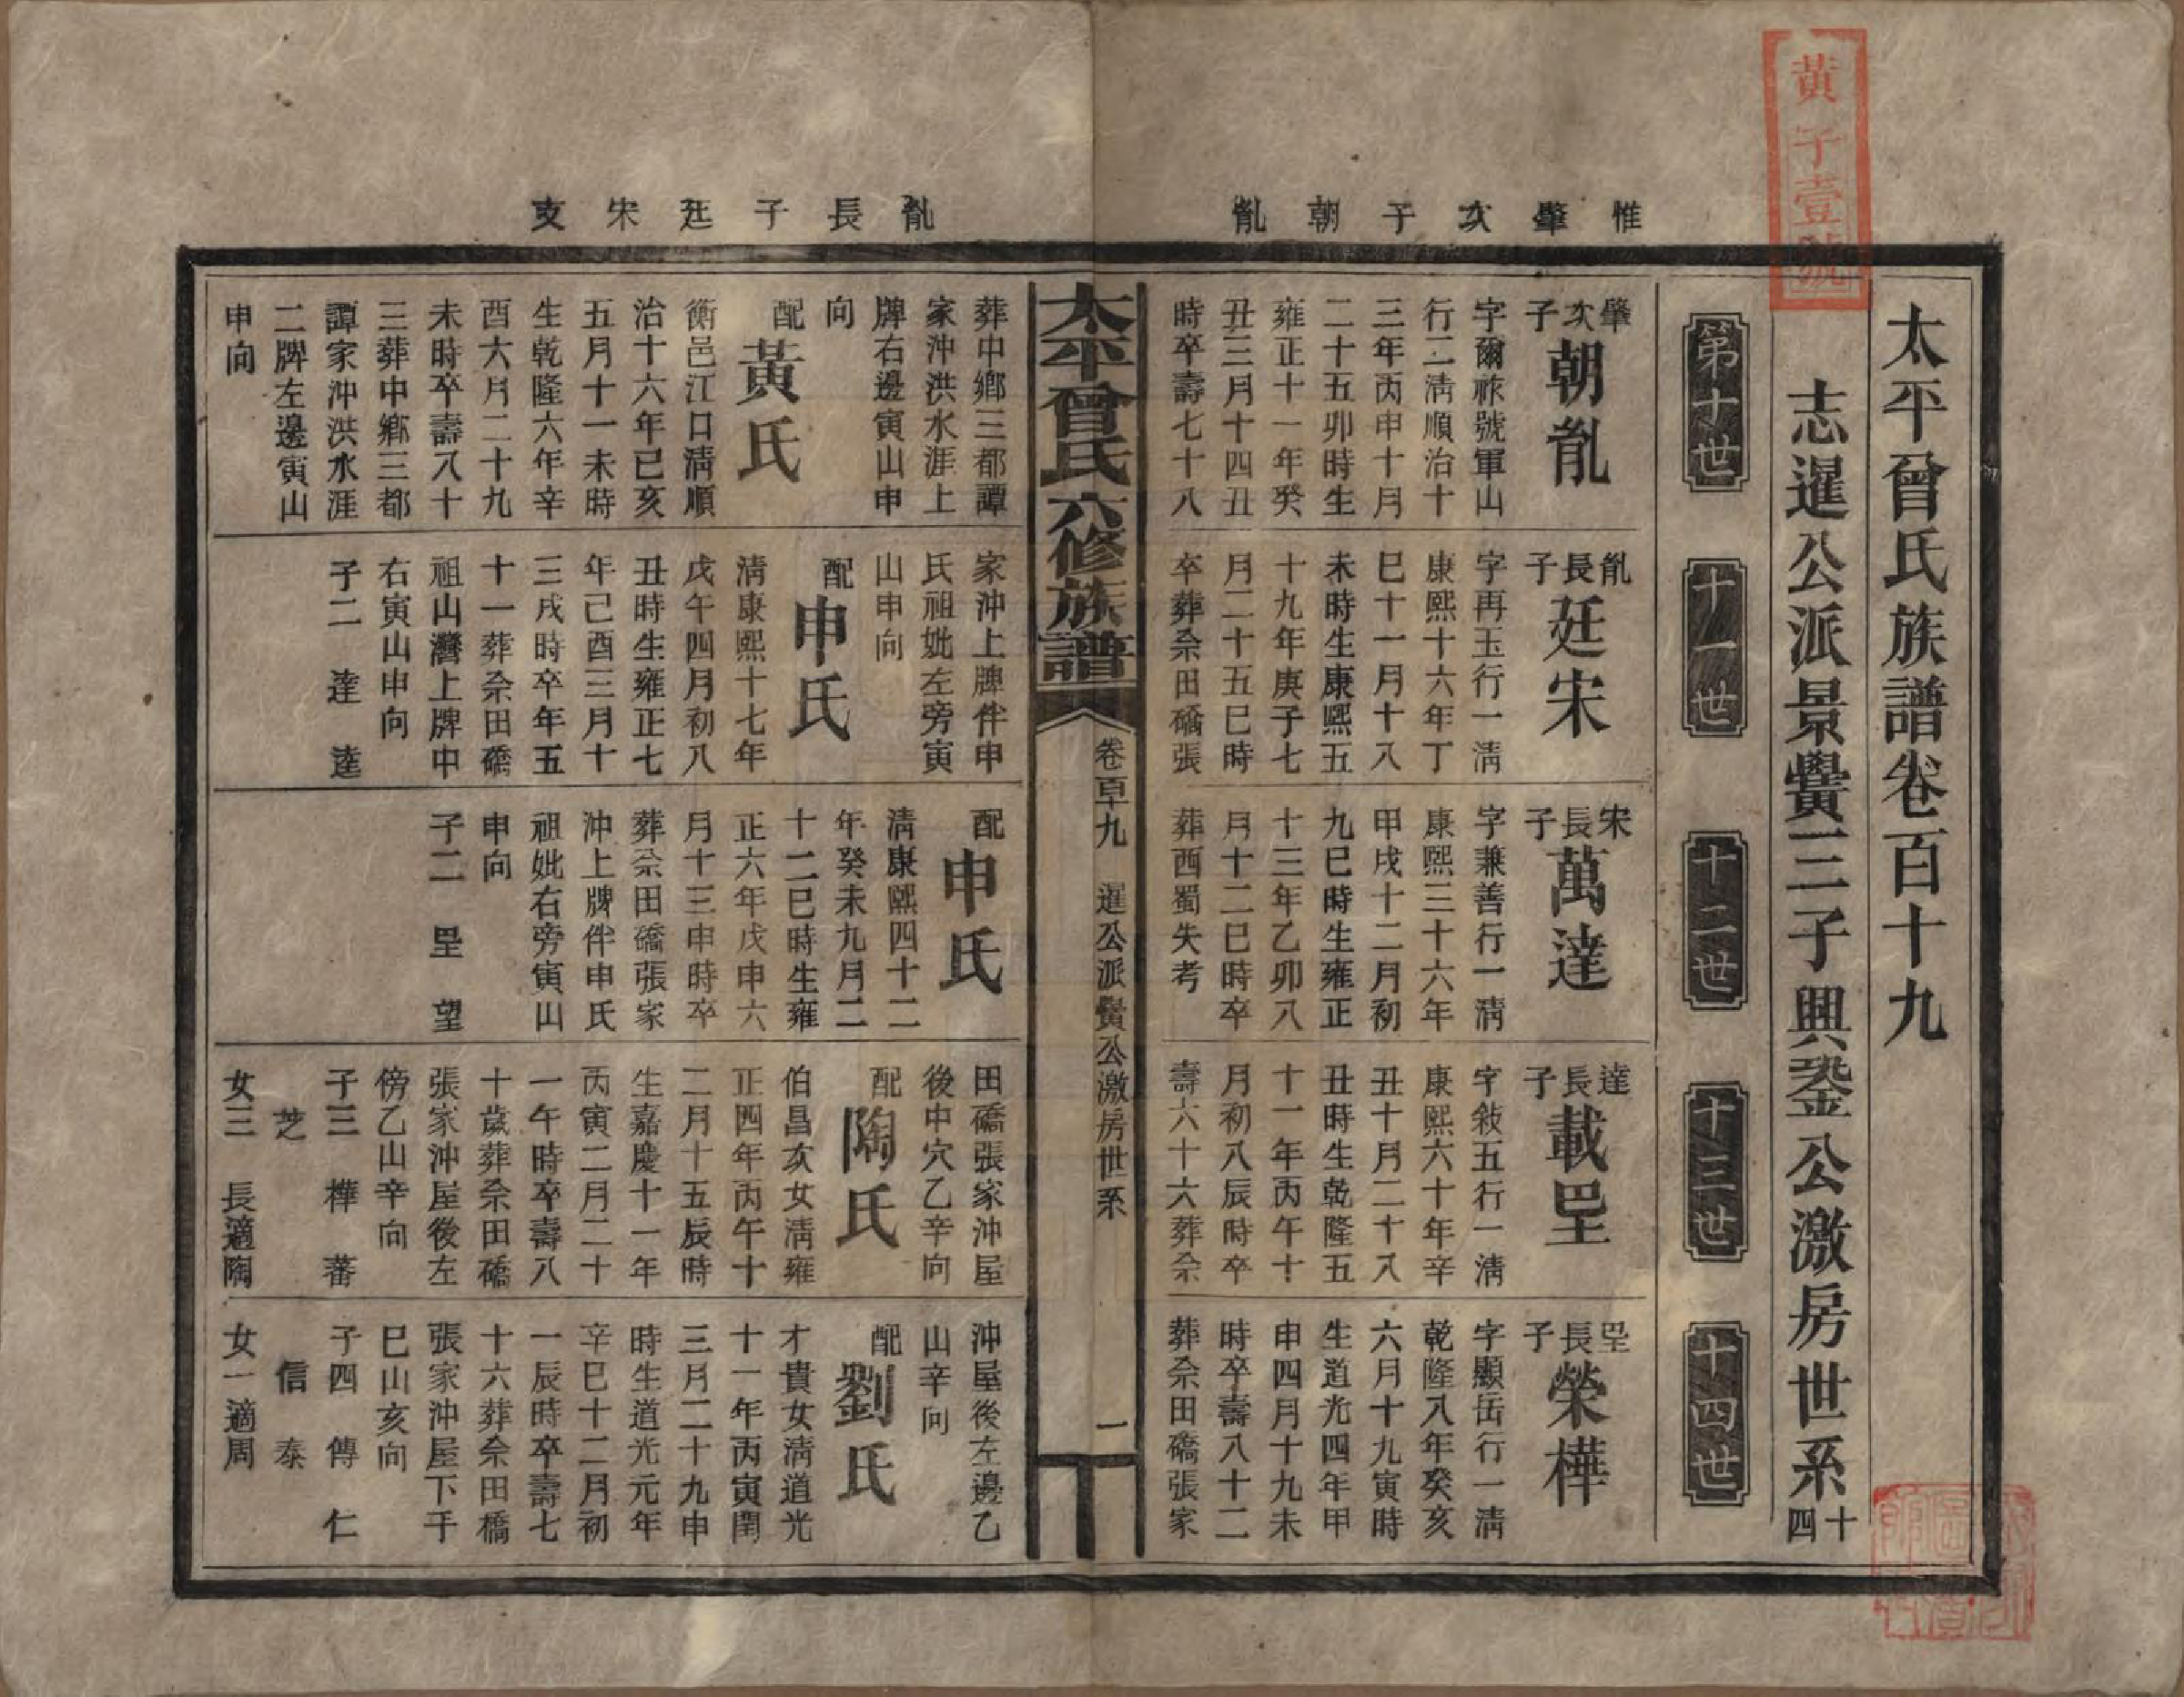 黃子壹號
太平曾氏族譜卷百十九
志暹公派景黌三子興鋆公激房世系 十四
第十世
十一世
十二世
十三世
十四世
惟肇次子朝胤
胤長子廷宋支
肇次子 朝胤
字爾祚號軍山
行二清順治十
三年丙申十月
二十五卯時生
雍正十一年癸
丑三月十四丑
時卒壽七十八
葬中鄉三都譚
家沖洪水涯上
牌右邊寅山申
向
配 黃氏
衡邑江口清順
治十六年己亥
五月十一未時
生乾隆六年辛
酉六月二十九
未時卒壽八十
三葬中鄉三都
譚家沖洪水涯
二牌左邊寅山
申向
胤長子 廷宋
字再玉行一清
康熙十六年丁
巳十一月十八
未時生康熙五
十九年庚子七
月二十五巳時
卒葬籴田礄張
家沖上牌伴申
氏祖妣左旁寅
山申向
配 申氏
清康熙十七年
戊午四月初八
丑時生雍正七
年己酉三月十
三戌時卒年五
十一葬籴田礄
祖山灣上牌中
右寅山申向
子二 達 逵
宋長子 萬達
字兼善行一清
康熙三十六年
甲戌十二月初
九巳時生雍正
十三年乙卯八
月十二巳時卒
葬西蜀失考
配 申氏
清康熙四十二
年癸未九月二
十二巳時生雍
正六年戊申六
月十三申時卒
葬籴田礄張家
沖上牌伴申氏
祖妣右旁寅山
申向
子二 㞷 望
達長子 載㞷
字敍五行一清
康熙六十年辛
丑十月二十八
丑時生乾隆五
十一年丙午十
月初八辰時卒
壽六十六葬籴
田礄張家沖屋
後中穴乙辛向
配 陶氏
伯昌次女清雍
正四年丙午十
二月十五辰時
生嘉慶十一年
丙寅二月二十
一午時卒壽八
十歲葬籴田礄
張家沖屋後左
傍乙山辛向
子三 樺 蕃
芝
女三 長適陶
㞷長子 榮樺
字顯岳行一清
乾隆八年癸亥
六月十九寅時
生道光四年甲
申四月十九未
時卒壽八十二
葬籴田礄張家
沖屋後左邊乙
山辛向
配 劉氏
才貴女清道光
十一年丙寅閏
三月二十九申
時生道光元年
辛巳十二月初
一辰時卒壽七
十六葬籴田橋
張家沖屋下手
巳山亥向
子四 傳 仁
信 泰
女一適周
太平曾氏六修族譜
卷百十九 暹公派黌公激房世系
一